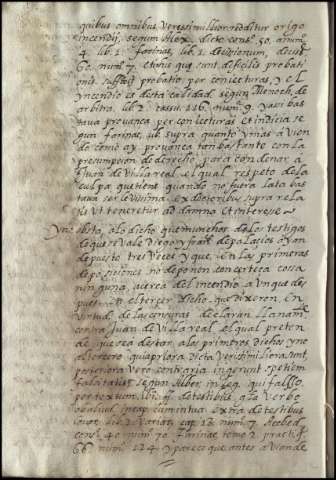 quibus omnibus, Verosimilior redditur origo
incendij, segun Alex. dicto cons. 50. a num.
4. lib. 1. Farinac. lib. 1. decisionum, decis.
60. num. 7. et in his que sunt dificilis probati
onis sufficit probatio per coniecturas, y el
yncendio es desta calidad, segun Menoch. de
arbitra. lib. 2. casu. 116. num. 9. y assi bas
tava provança per coniecturas et indicia se
gun farinac. ubi supra quanto ymas avien
do como ay provança tan bastante con la
presumpcion de derecho, para condenar a
Juan de Villa real el qual respeto de la
culpa que tiene quando no fuera lata bas
tava ser levissima, ex doctoribus supra rela
tis ut teneretur ad damna et interesse
Yno obsta, a lo dicho que muchos de los testigos
de que se vale Diego y fran.co de palacios ayan
depuesto tres Veces y que, en las primeras
deposiciones no deponen con certeça cossa
ninguna, acerca del incendio aunque des
pues en el tercer dicho que dixeron, En
virtud de las censuras declaran llanam.te
contra Juan de Villa real, el qual preten
de que sea de estar, a los primeros dichos y no
al tercero quia priora dicta Verisimiliora sunt,
posteriora Vero contraria ingerunt spetiem
falsitatis segun Alber. in leg. qui falsso,
per textum, ibi, ff. de testibus,
in cap. cum in tua de testibus
lib. 2. Variar. cap. 13. num. 7.
cons. 40 num. 70. Farinac. tomo 2. practi.
66. num. 124. y parece que antes aviende